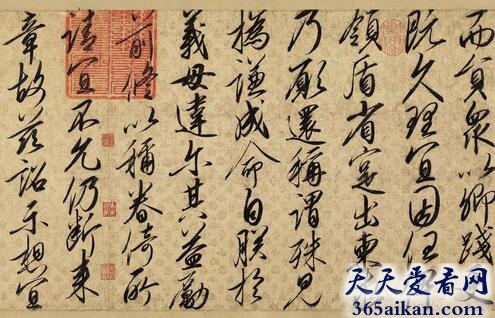 而員眾以卿踐更
既久理宜因任俾
領盾省寔出柬
乃願還稱謂殊見
捴謙成命自朕於
義毋違尔其益勵
前修以稱眷倚所
請宜不允仍斷來
章故茲詔示想宜
天天爱看网
365aikan.com